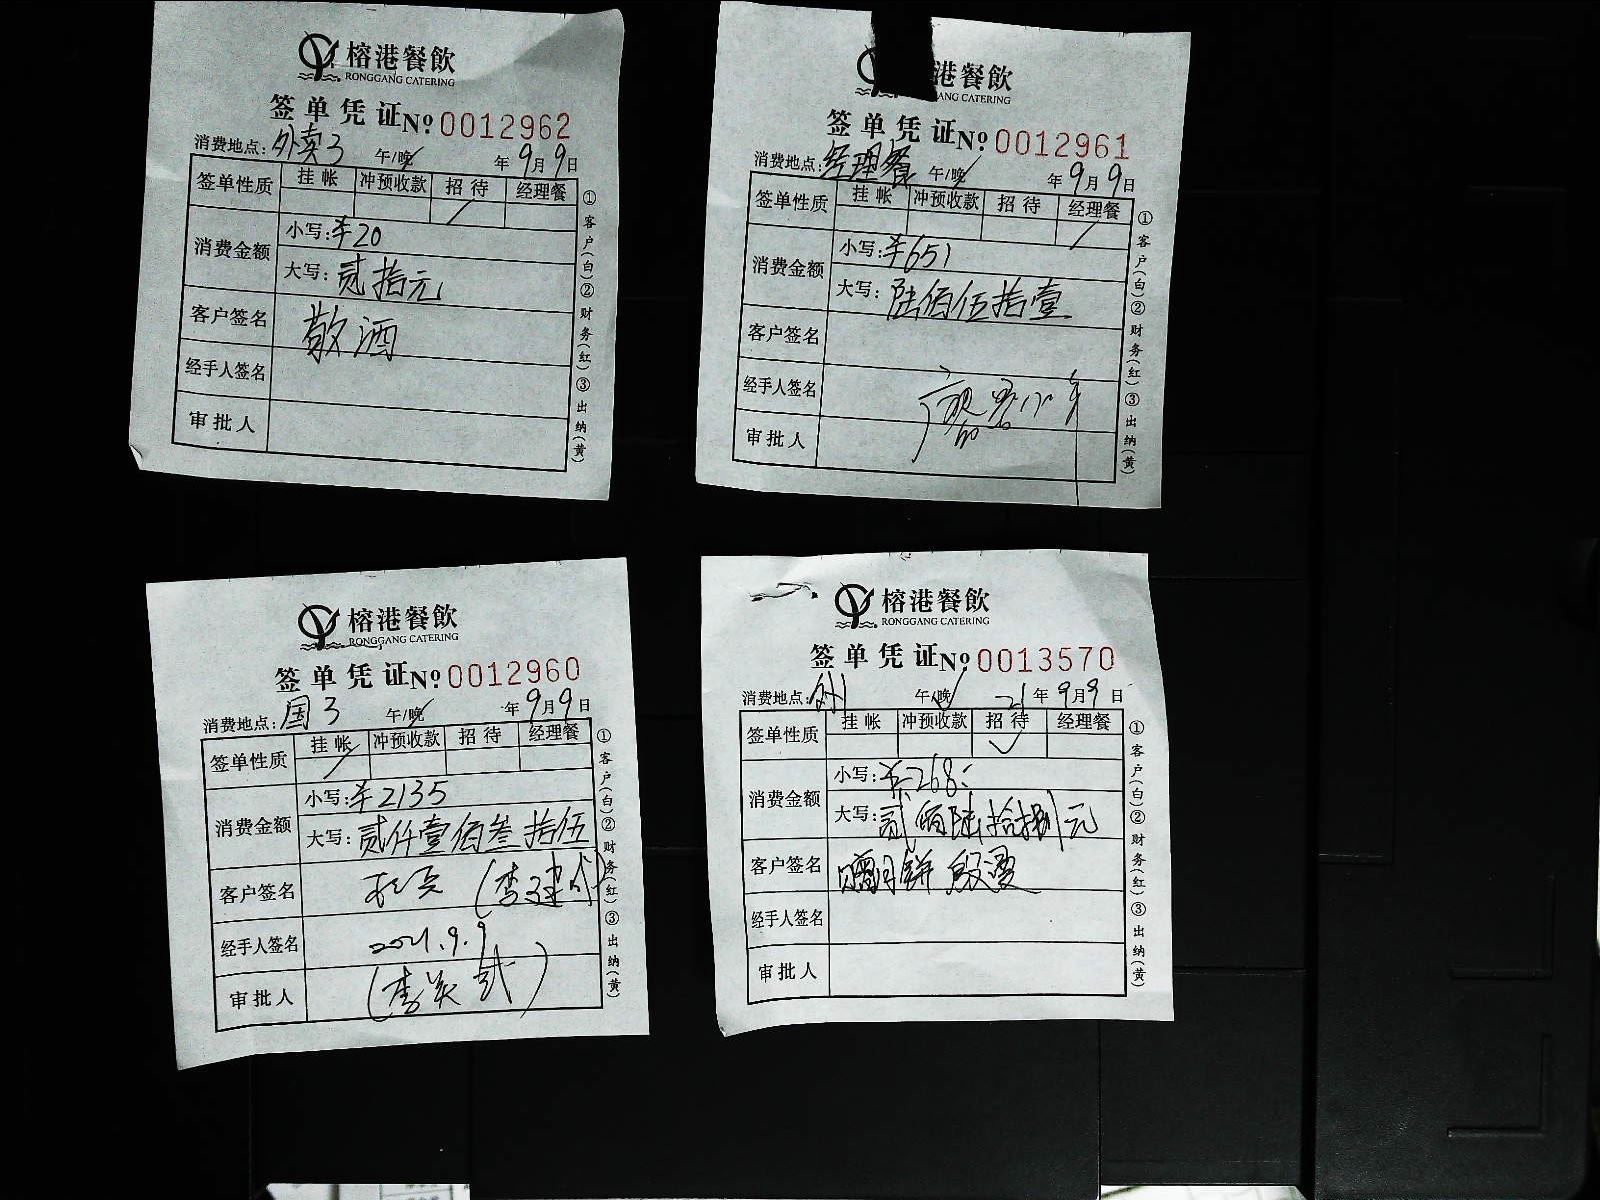 榕港餐飲
RONGGANG CATERING
签单凭证 № 0012962
消费地点：外卖3 午/晚 年9月9日
签单性质 挂帐 冲预收款 招待 经理餐
消费金额 小写：¥20
大写：贰拾元
客户签名 散酒
经手人签名
审批人
①客户（白）②财务（红）③出纳（黄）
港餐飲
ANG CATERING
签单凭证 № 0012961
消费地点：经理餐 午/晚 年9月9日
签单性质 挂帐 冲预收款 招待 经理餐
消费金额 小写：¥651
大写：陆佰伍拾壹
客户签名
经手人签名
审批人
①客户（白）②财务（红）③出纳（黄）
榕港餐飲
RONGGANG CATERING
签单凭证 № 0012960
消费地点：国3 午/晚 年9月9日
签单性质 挂帐 冲预收款 招待 经理餐
消费金额 小写：¥2135
大写：贰仟壹佰叁拾伍
客户签名
经手人签名 2021.9.9
审批人
①客户（白）②财务（红）③出纳（黄）
榕港餐飲
RONGGANG CATERING
签单凭证 № 0013570
消费地点： 午/晚 21年9月9日
签单性质 挂帐 冲预收款 招待 经理餐
消费金额 小写：¥268
大写：贰佰陆拾捌元
客户签名 月餅
经手人签名
审批人
①客户（白）②财务（红）③出纳（黄）